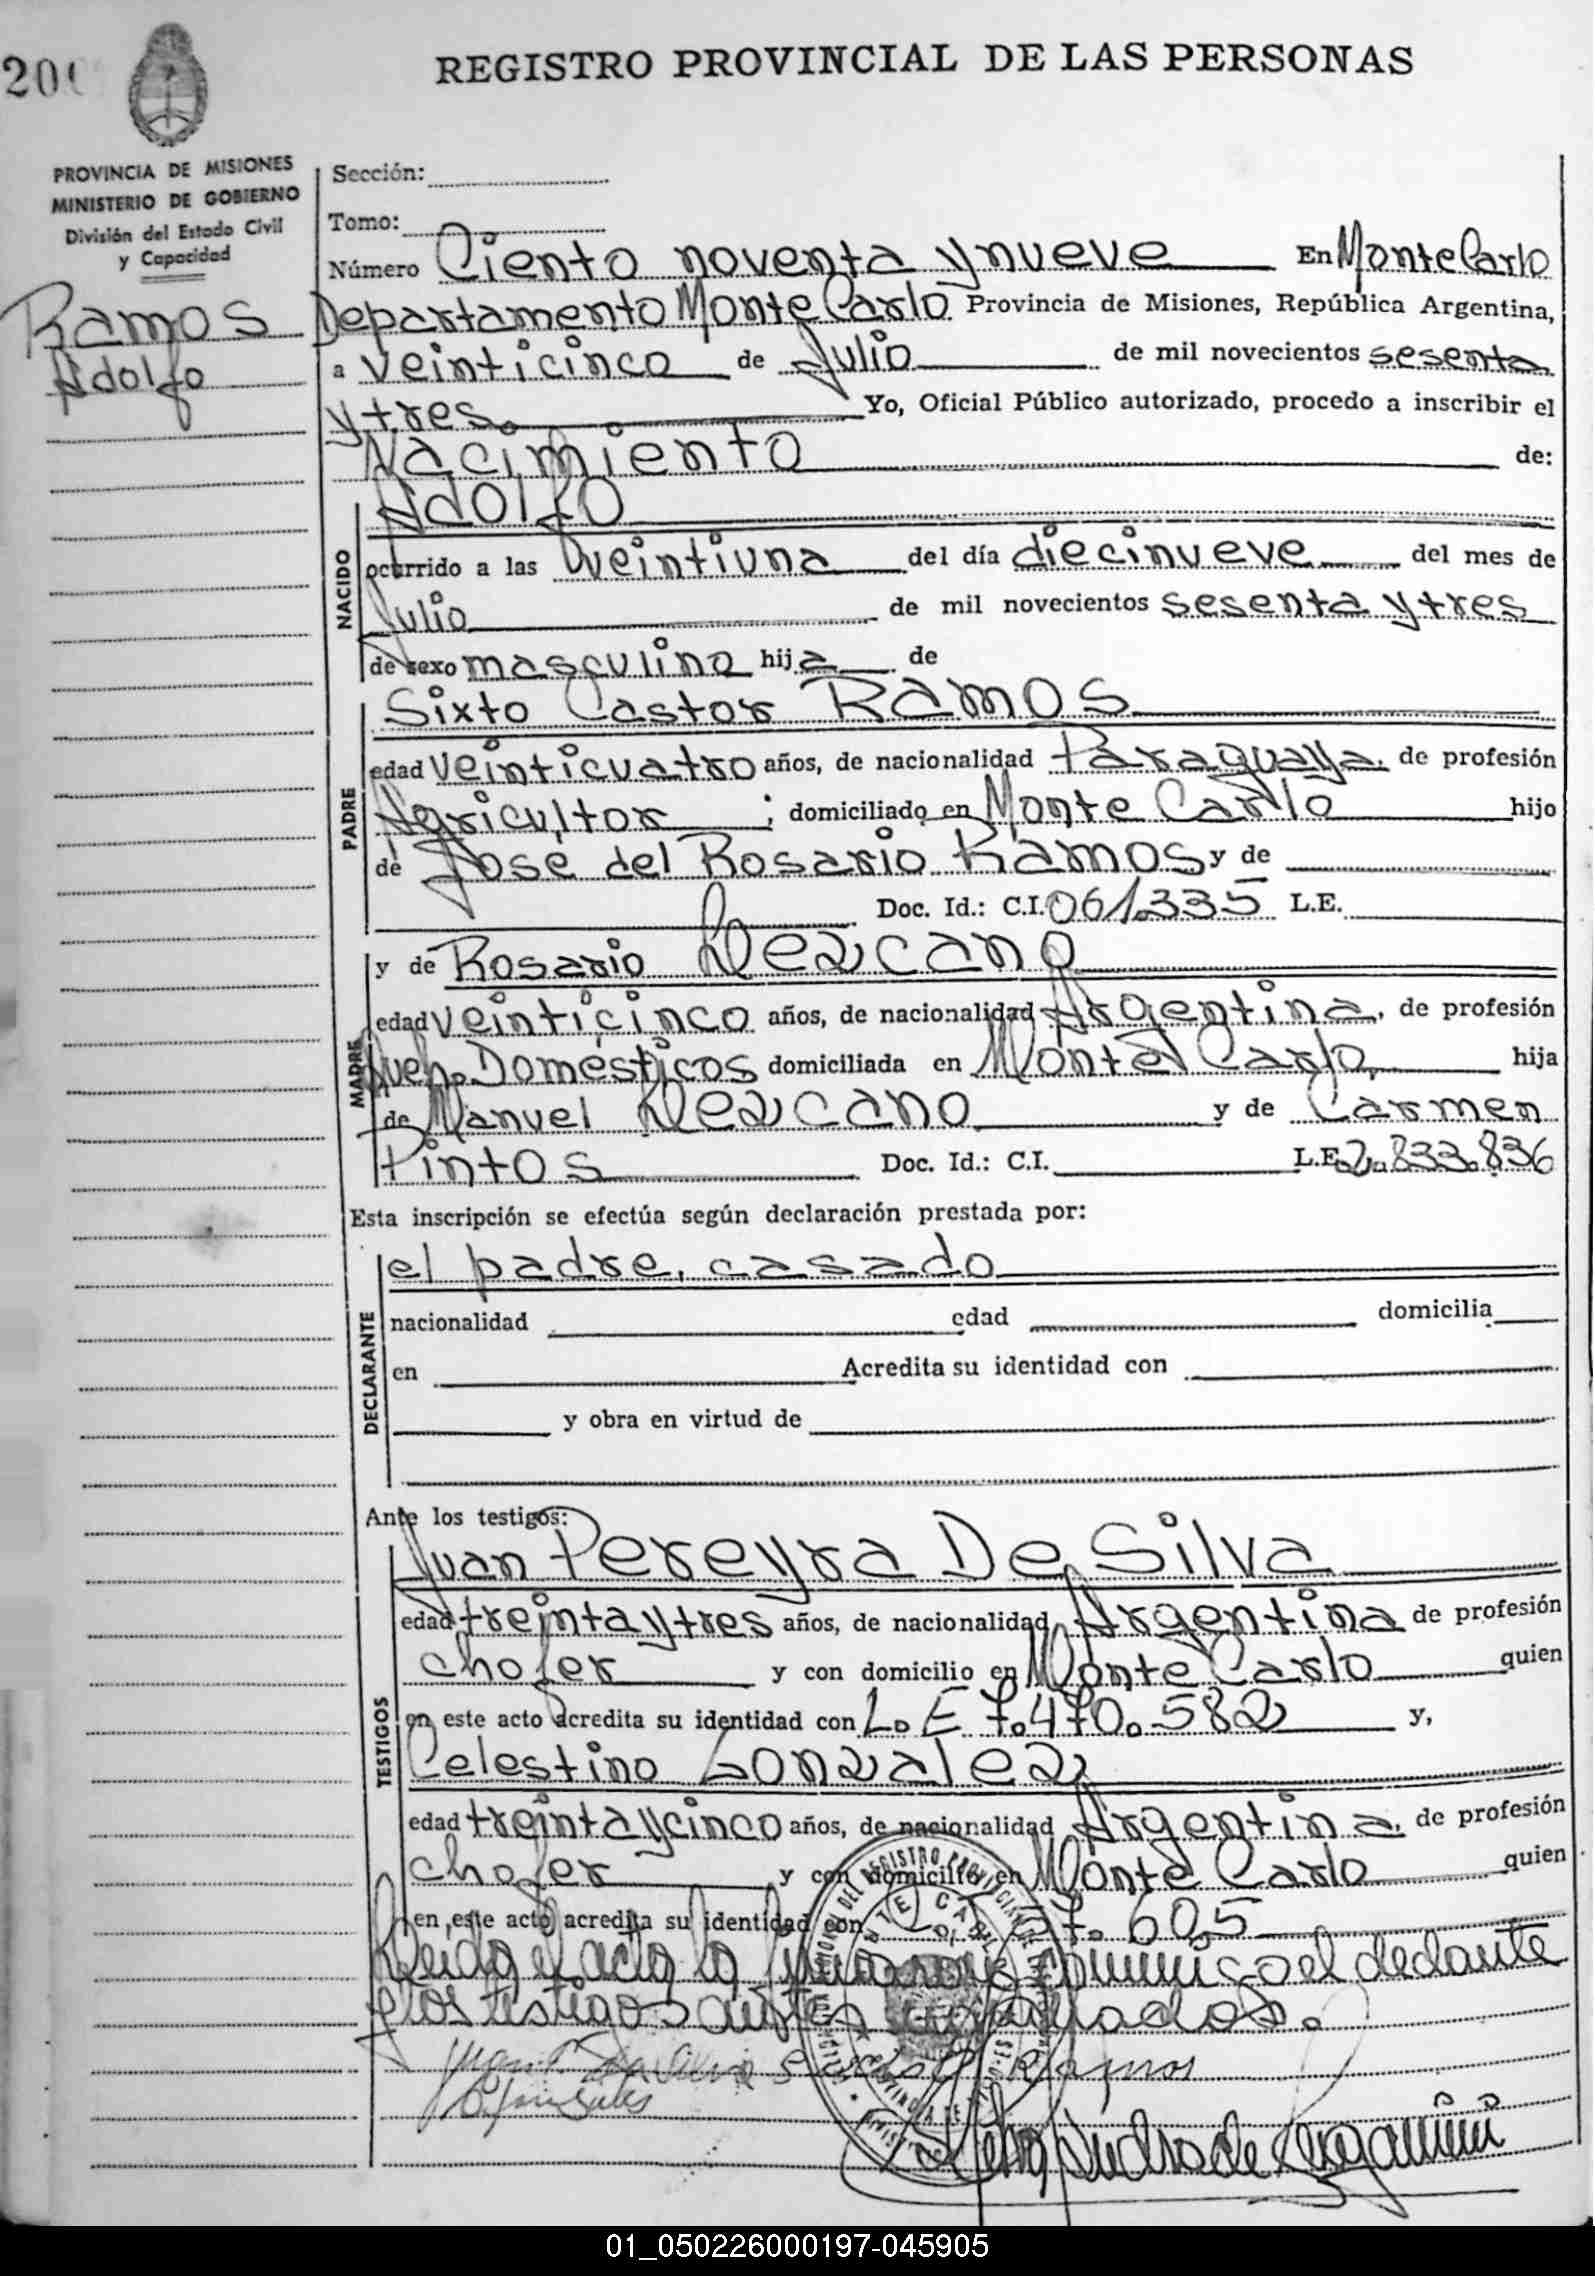 200
REGISTRO PROVINCIAL DE LAS PERSONAS
PROVINCIA DE MISIONES
MINISTERIO DE GOBIERNO
División del Estado Civil
y Capacidad
Ramos
Adolfo
Sección:
Tomo:
Número Ciento noventa y nueve En Monte Carlo
Departamento Monte Carlo Provincia de Misiones, República Argentina,
a veinticinco de Julio de mil novecientos sesenta
y tres. Yo, Oficial Público autorizado, procedo a inscribir el
Nacimiento de:
NACIDO
Adolfo
ocurrido a las veintiuna del día diecinueve del mes de
Julio de mil novecientos sesenta y tres
de sexo masculino hija de
PADRE
Sixto Castor Ramos
edad veinticuatro años, de nacionalidad Paraguaya. de profesión
Agricultor ; domiciliado en Monte Carlo hijo
de José del Rosario Ramos y de
Doc. Id.: C.I. 061.335 L.E.
MADRE
y de Rosario Lezcano
edad veinticinco años, de nacionalidad Argentina. de profesión
Queh. Domésticos domiciliada en Monte Carlo, hija
de Manuel Lezcano y de Carmen
Pintos Doc. Id.: C.I. L.E. 2.833.836
Esta inscripción se efectúa según declaración prestada por:
DECLARANTE
el padre, casado
nacionalidad edad domicilia
en Acredita su identidad con
y obra en virtud de
Ante los testigos:
TESTIGOS
Juan Pereyra De Silva
edad treinta y tres años, de nacionalidad Argentina de profesión
chofer y con domicilio en Monte Carlo quien
en este acto acredita su identidad con L. E 7.470.582 y,
Celestino Gonzalez
edad treinta y cinco años, de nacionalidad Argentina. de profesión
chofer y con domicilio en Monte Carlo quien
en este acto acredita su identidad con 57.605
Leida el acta la firman conmigo el declarante
y los testigos antes expresados.
Ramos
01_050226000197-045905